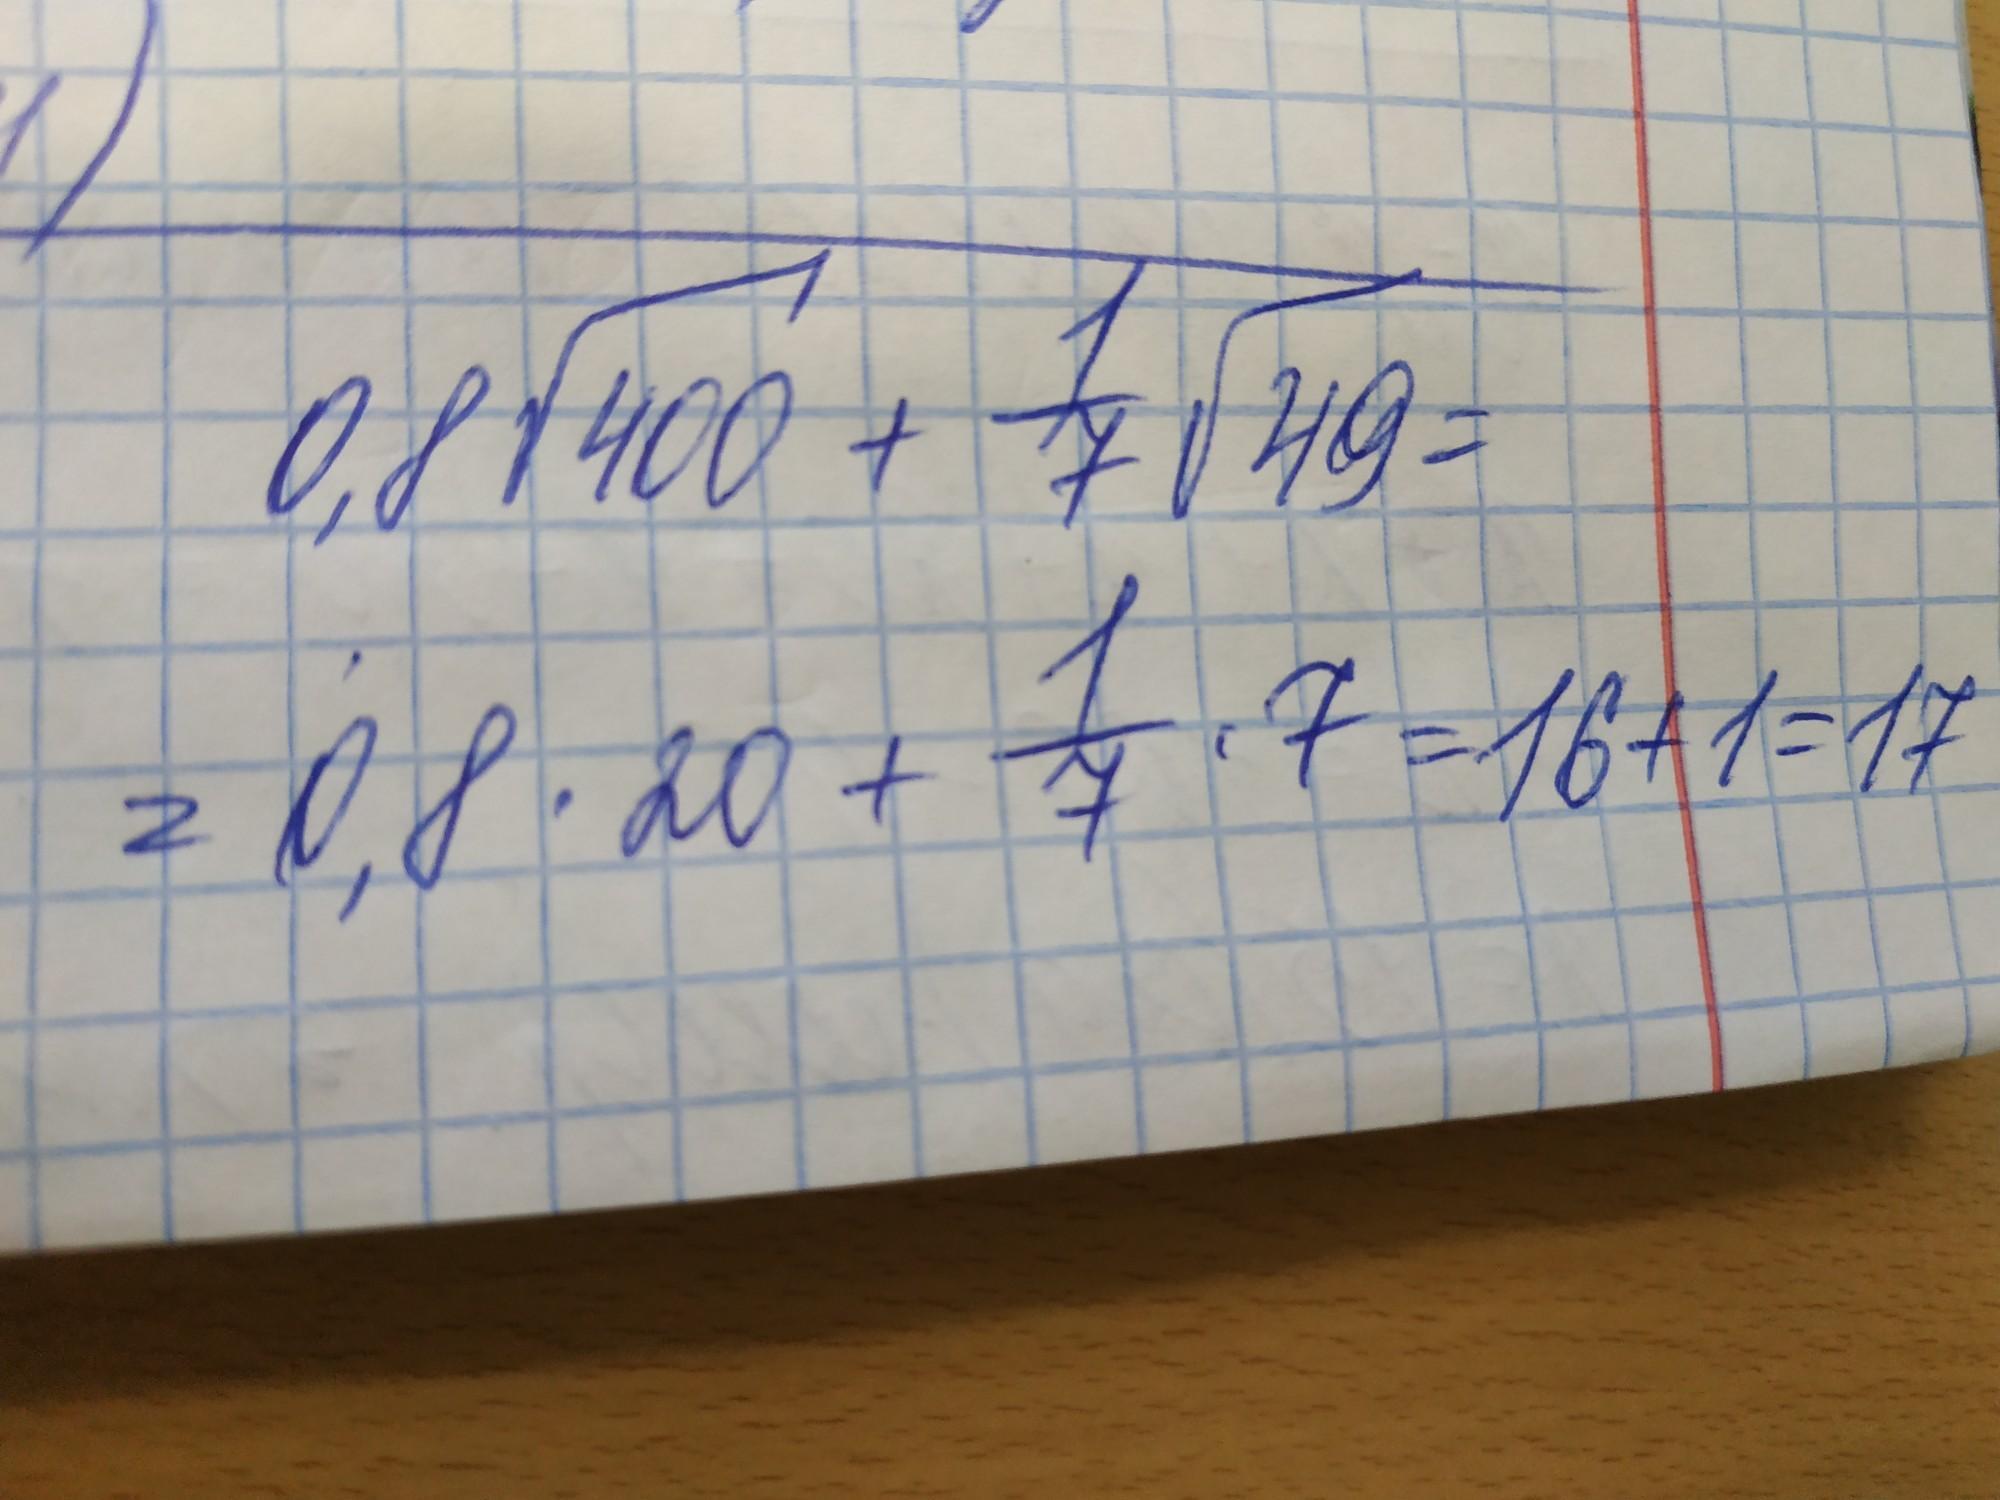 0,8√400 + 1/7 √49 =
= 0,8 · 20 + 1/7 · 7 = 16 + 1 = 17